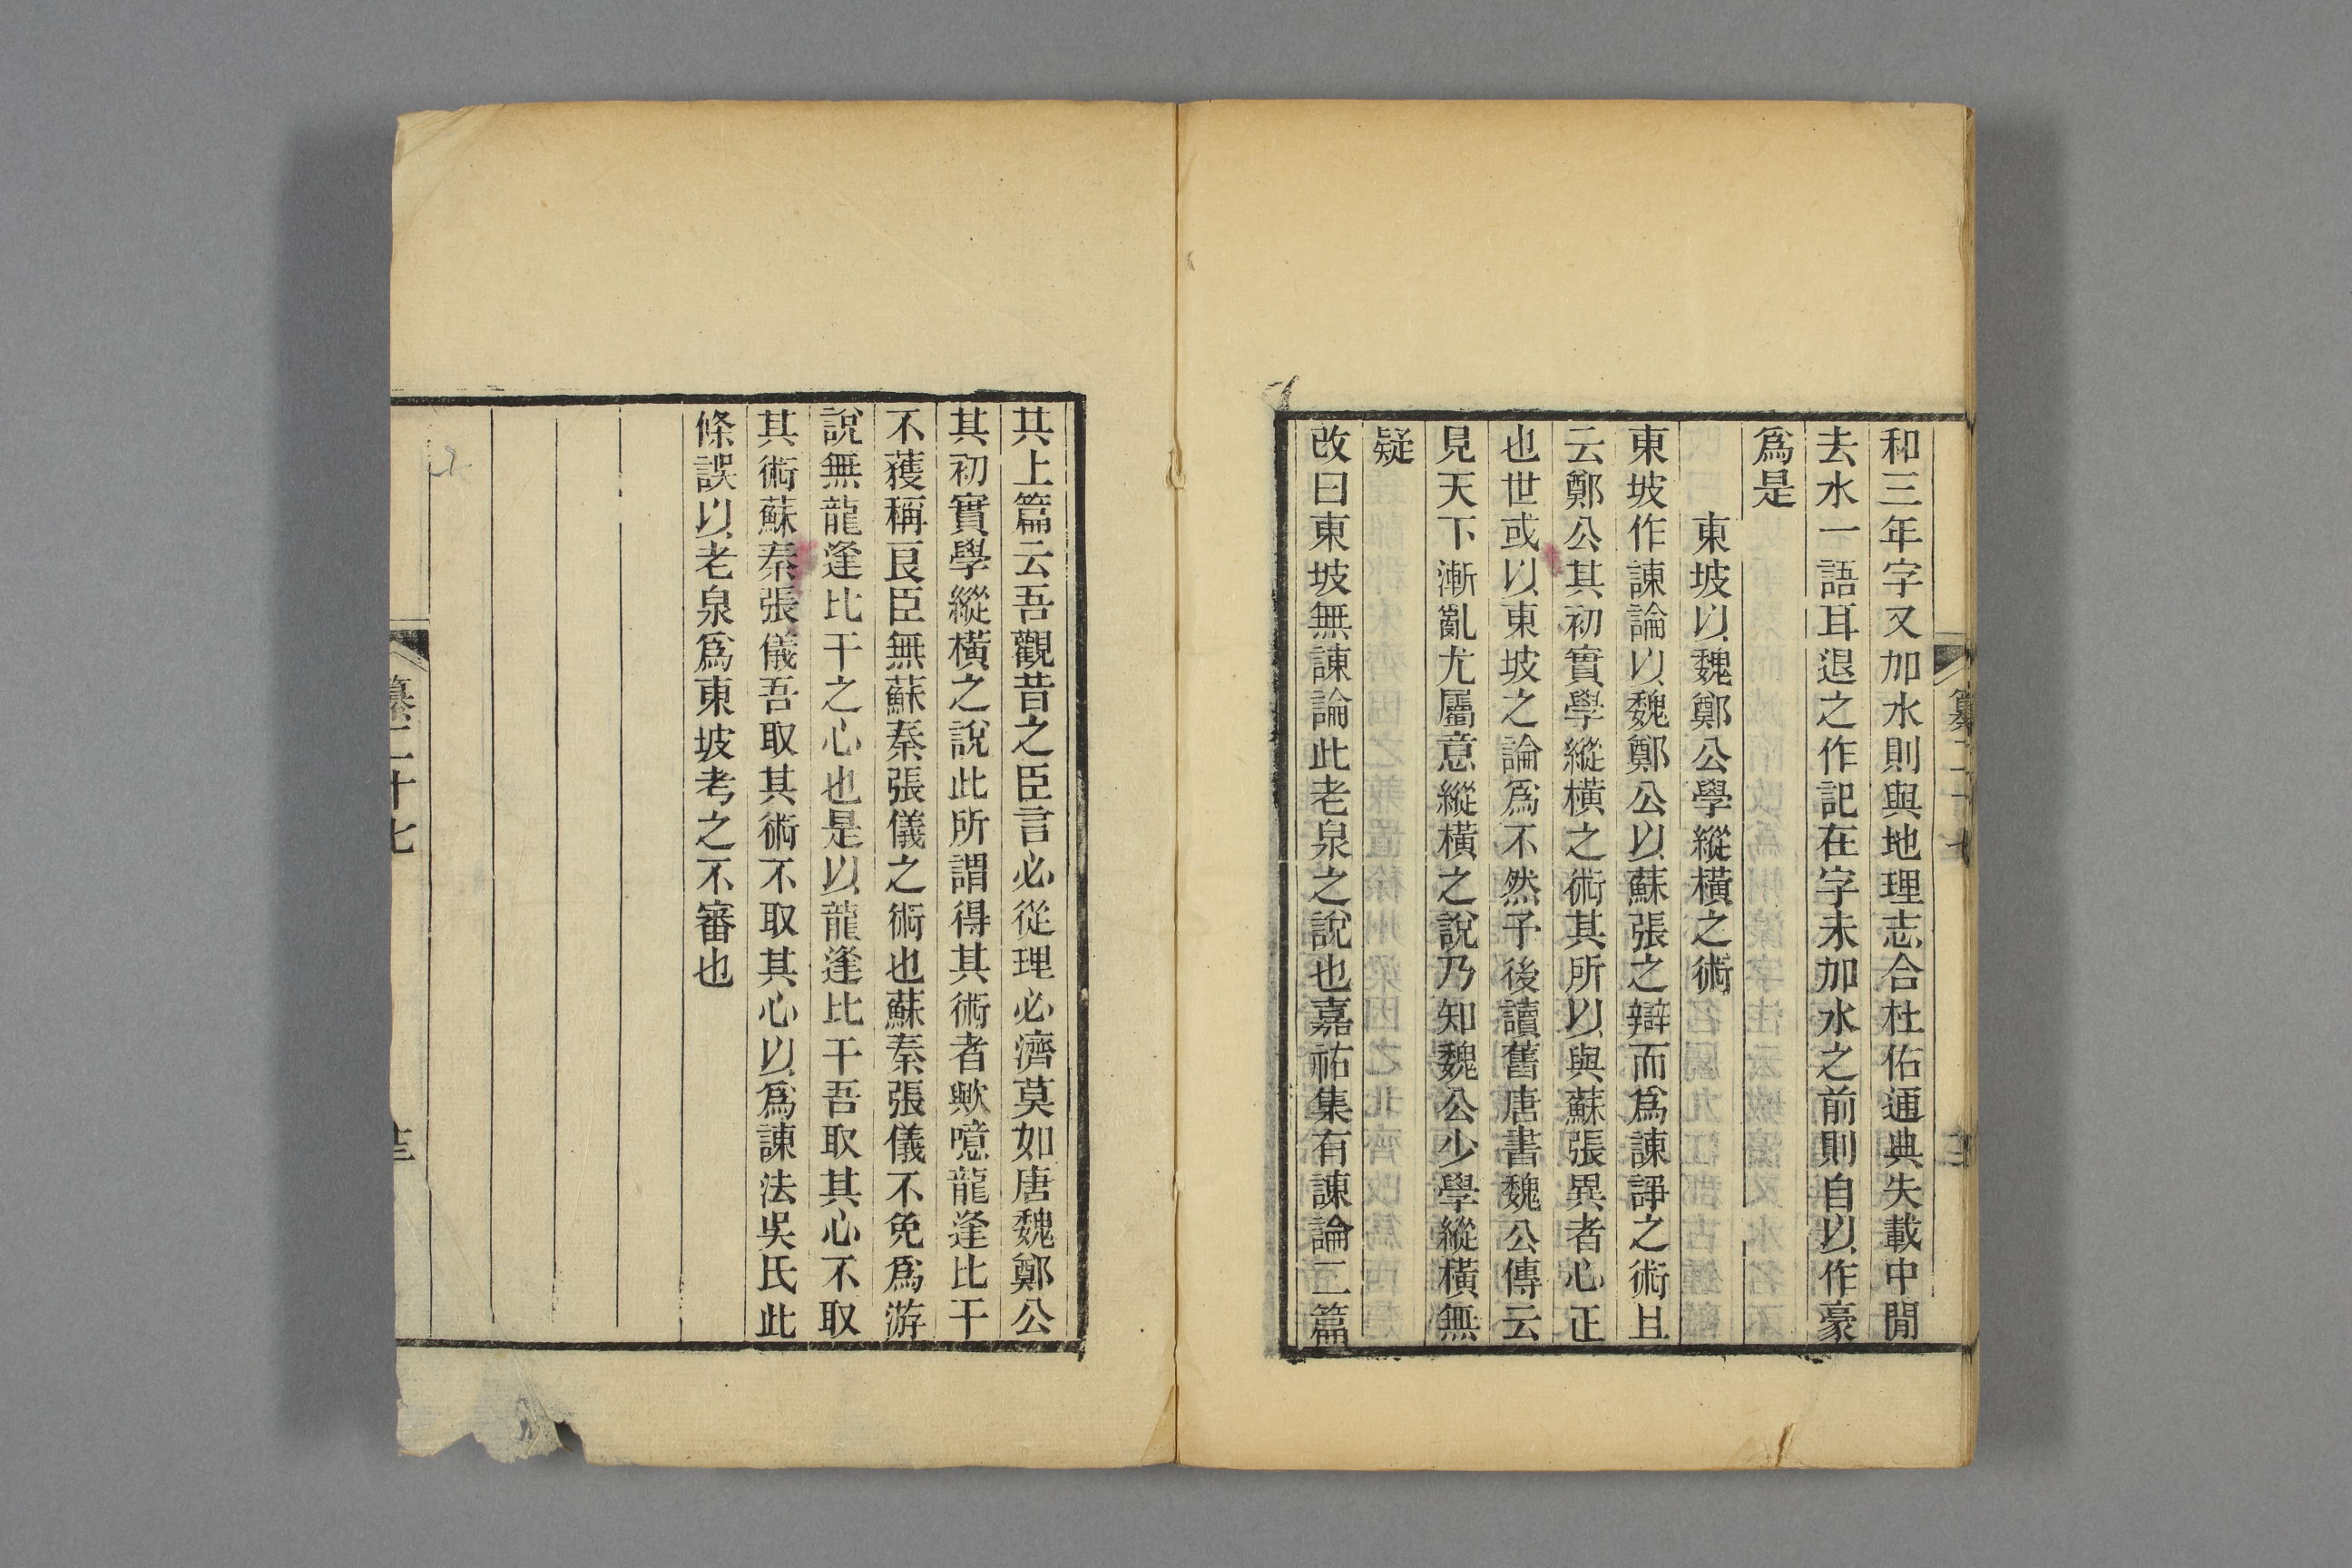 和三年字又加水則與地理志合杜佑通典失載中閒
去水一語耳退之作記在字未加水之前則自以作豪
爲是
東坡以魏鄭公學縱橫之術
東坡作諫論以魏鄭公以蘇張之辯而爲諫諍之術且
云鄭公其初實學縱橫之術其所以與蘇張異者心正
也世或以東坡之論爲不然予後讀舊唐書魏公傳云
見天下漸亂尤屬意縱橫之說乃知魏公少學縱橫無
疑
改曰東坡無諫論此老泉之說也嘉祐集有諫論二篇
共上篇云吾觀昔之臣言必從理必濟莫如唐魏鄭公
其初實學縱橫之說此所謂得其術者歟噫龍逢比干
不獲稱良臣無蘇秦張儀之術也蘇秦張儀不免爲游
說無龍逢比干之心也是以龍逢比干吾取其心不取
其術蘇秦張儀吾取其術不取其心以爲諫法吳氏此
條誤以老泉爲東坡考之不審也
纂二十七